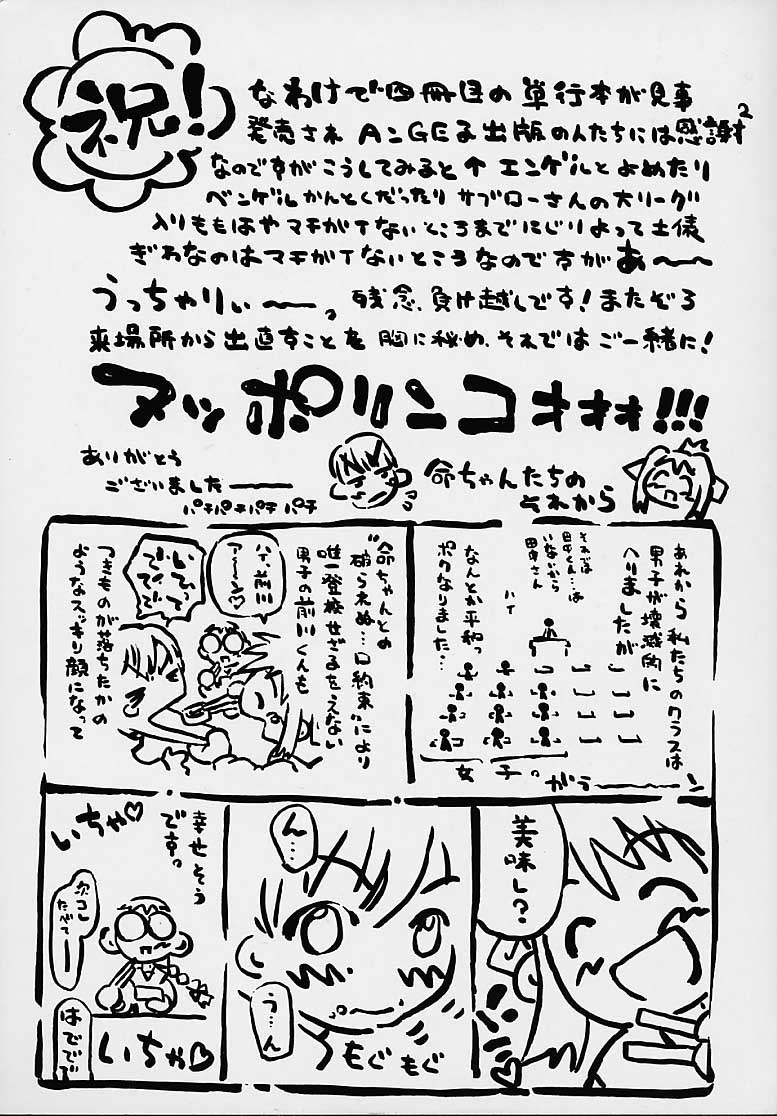 祝!
なわけで四冊目の単行本が見事
発売され AンGEる出版の人たちには感謝²
なのですがこうしてみると↑エンゲルとよめたり
ベンゲルかんとくだったり サブローさんの大リーグ
入りももはやマチガイないところまでにじりよって土俵
ぎわなのはマチガイないところなのですが あ〜〜
うっちゃりぃ〜〜っ 残念、負け越しです!またぞろ
来場所から出直すことを胸に秘め、それではご一緒に!
マッポリンコオオオ!!!
ありがとう
ございました――
パチパチパチパチ
命ちゃんたちの
それから
あれから私たちのクラスは
男子が壊滅的に
へりましたが
それでは
田中くん…は
いないから
田中さん
ハイ
なんとか平和っ
ポクなりました…
女子っ
がらーーーン
"命ちゃんとの
破られぬ…口約束"により
唯一登校せざるをえない
男子の前川くんも
ハイ、前川
ア〜〜ン♡
つきものが落ちたかの
ようなスッキリ顔になって
美味し?
ん…
う…ん
もぐもぐ
幸せそう
ですっ
いちゃ♡
次コレ
たべてー
いちゃ♡
はででで